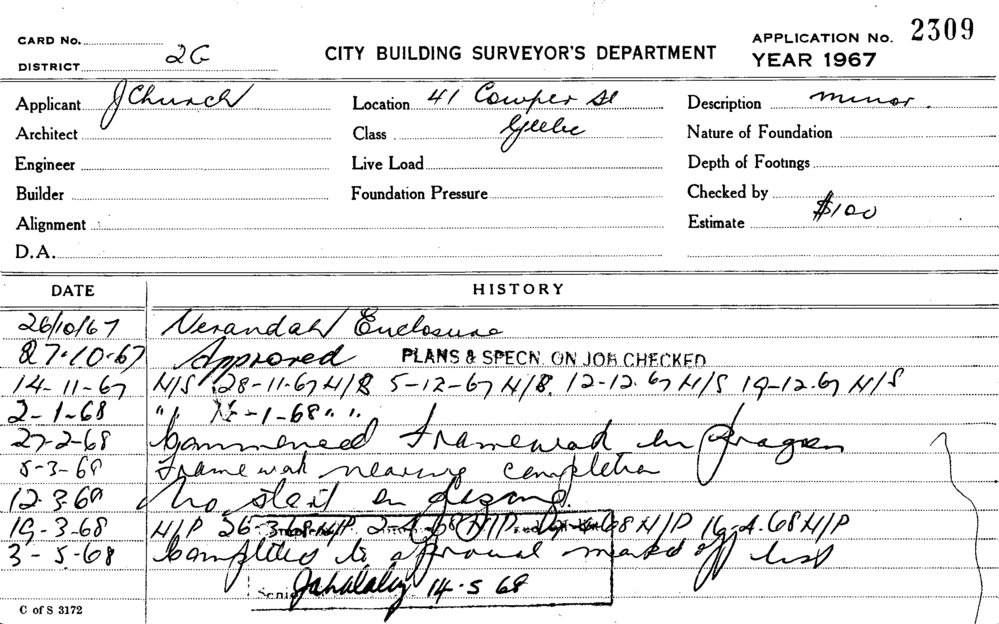 CARD No.
DISTRICT 2G
CITY BUILDING SURVEYOR'S DEPARTMENT
APPLICATION No. 2309
YEAR 1967
Applicant J Church
Location 41 Cowper St
Description minor.
Architect
Class Glebe
Nature of Foundation
Engineer
Live Load
Depth of Footings
Builder
Foundation Pressure
Checked by
Alignment
Estimate $100
D.A.
DATE HISTORY
26/10/67 Verandah Enclosure
27-10-67 Approved PLANS & SPECN. ON JOB CHECKED
14-11-67 N/S 28-11-67 N/S 5-12-67 N/S. 12-12-67 N/S 19-12-67 N/S
2-1-68 " " -1-68 " "
27-2-68 Commenced framework in progress
5-3-68 Framework nearing completion
12-3-68 No
19-3-68 N/P 26-3-68 N/P 2-4-68 N/P 68 N/P 19-4.68 N/P
3-5-68 Completed to approval marked off list
Senior 14-5 68
C of S 3172